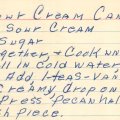 our Cream Can
Sour Cream
Sugar
ogether, & Cook un
ll in Cold water
Add 1 teas- Van
Creamy drop on
Press Pecan hal
ch piece.